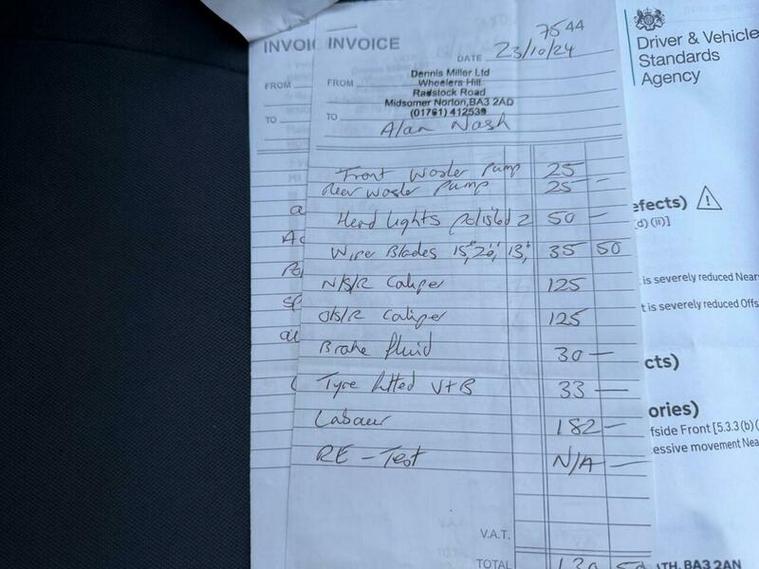 INVOI
FROM
TO
INVOICE
7544
DATE 23/10/24
FROM
Dennis Miller Ltd
Wheelers Hill
Radstock Road
Midsomer Norton, BA3 2AD
(01761) 412539
TO
Alan Nash
Front Washer Pump 25
Rear washer Pump 25 —
Head Lights Polished 2 50 —
Wiper Blades 15", 26", 13" 35 50
N/S/R Caliper 125
O/S/R Caliper 125
Brake fluid 30 —
Tyre fitted V+B 33 —
Labour 182 —
RE-Test N/A —
V.A.T.
TOTAL
Driver & Vehicle
Standards
Agency
efects)
(d) (ii)]
is severely reduced Near
t is severely reduced Offs
cts)
ories)
fside Front [5.3.3 (b) (
essive movement Nea
TH, BA3 2AN